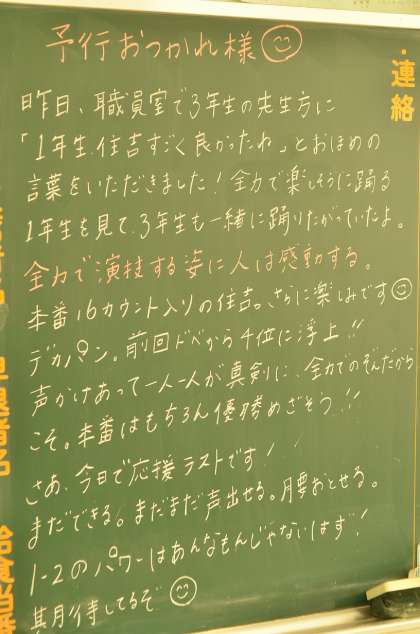 予行おつかれ様
連絡
昨日、職員室で3年生の先生方に
「1年生.住吉すごく良かったね」とおほめの
言葉をいただきました!全力で楽しそうに踊る
1年生を見て、3年生も一緒に踊りたがっていたよ。
全力で演技する姿に人は感動する。
本番16カウント入りの住吉。さらに楽しみです
デカパン。前回ドベから4位に浮上!!
声かけあって一人一人が真剣に、全力でのぞんだから
こそ。本番はもちろん優勝めざそう!!
さあ、今日で応援ラストです!
まだできる。まだまだ声出せる。腰おとせる。
1-2のパワーはあんなもんじゃないはず!
期待してるぞ
早退者名
給食当番